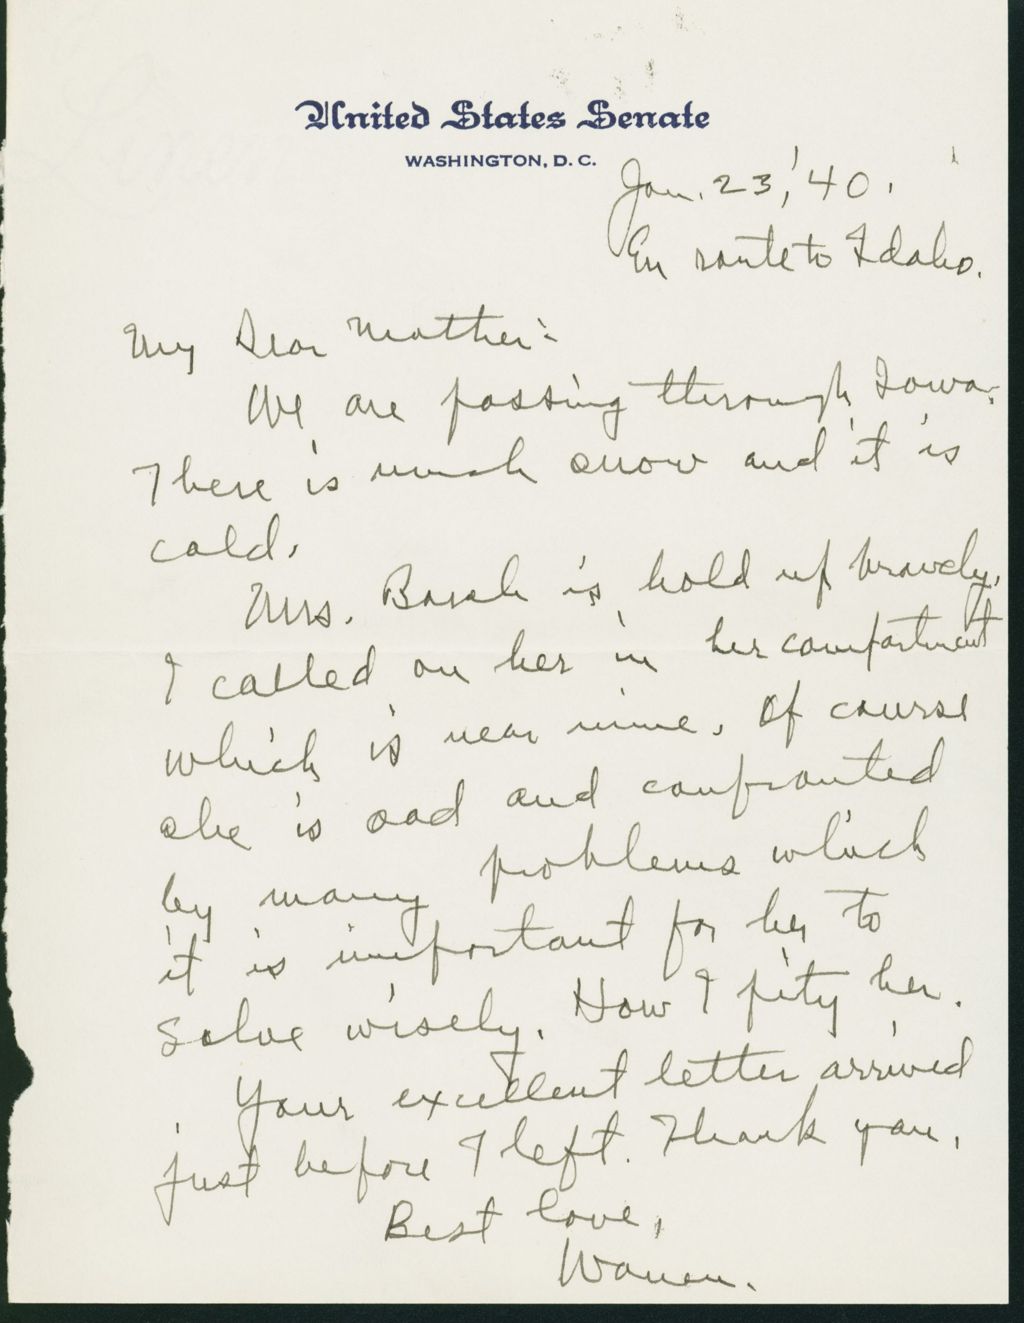 United States Senate
WASHINGTON, D. C.
Jan. 23, '40.
En route to Idaho.
My Dear Mother:
We are passing through Iowa.
There is much snow and it is
cold.
Mrs. Borah is hold up bravely.
I called on her in her compartment
which is near mine. Of course
she is sad and confronted
by many problems which
it is important for her to
solve wisely. How I pity her.
Your excellent letter arrived
just before I left. Thank you.
Best love,
Warren.